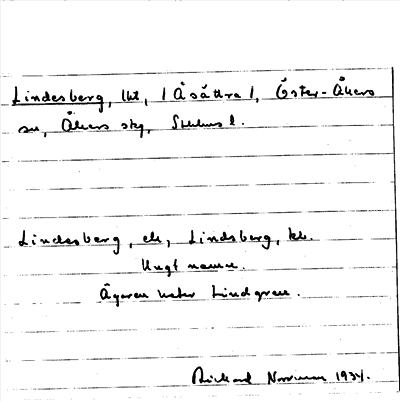 Lindesberg, lht, (Åsättra), Öster-Åkers
sn, Åkers skg, Sthlms l.
Lindesberg, ek, Lindsberg, kk.
Ungt namn.
Ägaren heter Lindgren.
Rickard 1934.